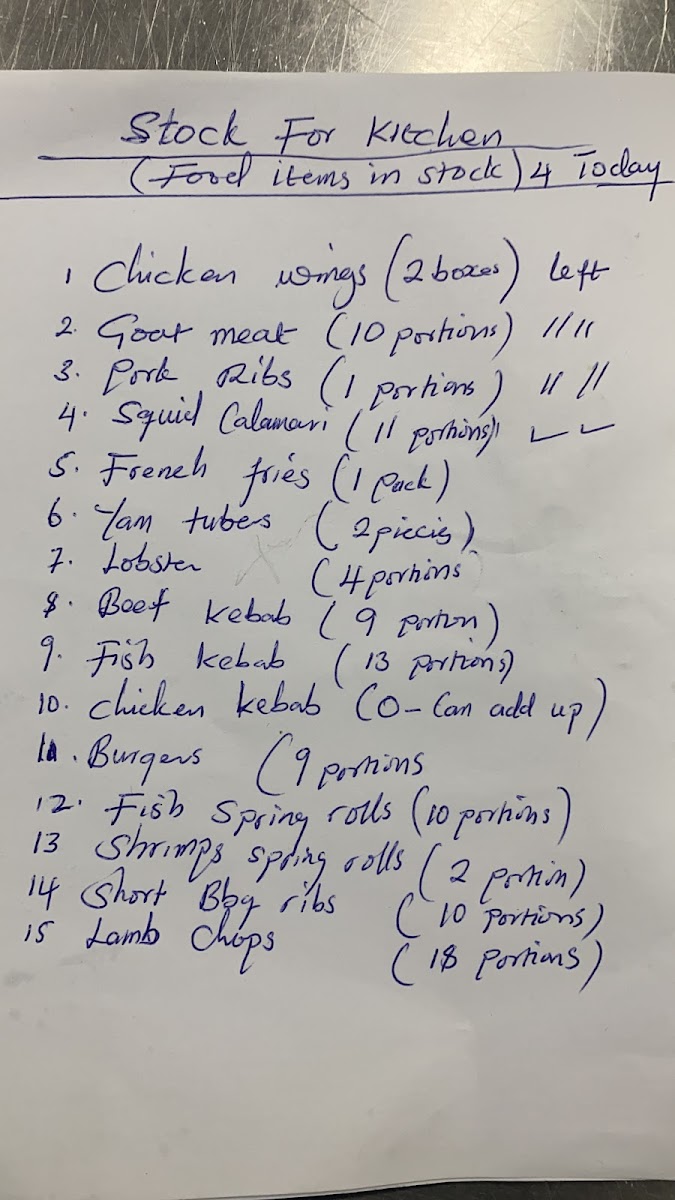 Stock For Kitchen
(Food items in stock) 4 Today
1 Chicken wings (2 boxes) left
2. Goat meat (10 portions) // //
3. Pork Ribs (1 portions) // //
4. Squid Calamari (11 portions)
5. French fries (1 pack)
6. Yam tubers (2 piecis)
7. Lobster (4 portions
8. Beef kebab (9 portion)
9. Fish kebab (13 portions)
10. chicken kebab (0 - Can add up)
11. Burgers (9 portions
12. Fish Spring rolls (10 portions)
13 Shrimps spring rolls (2 portion)
14 Short Bbq ribs (10 portions)
15 Lamb Chops (18 portions)